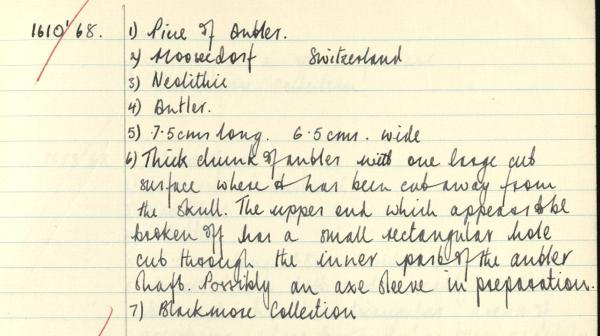 1610'68. 1) Piece of Antler.
2) Moosedorf Switzerland
3) Neolithic
4) Antler.
5) 7.5cms long. 6.5cms. wide
6) Thick chunk of antler with one large cut
surface where it has been cut away from
the skull. The upper end which appears to be
broken off has a small rectangular hole
cut through the inner part of the antler
shaft. Possibly an axe sleeve in preparation.
7) Blackmore Collection